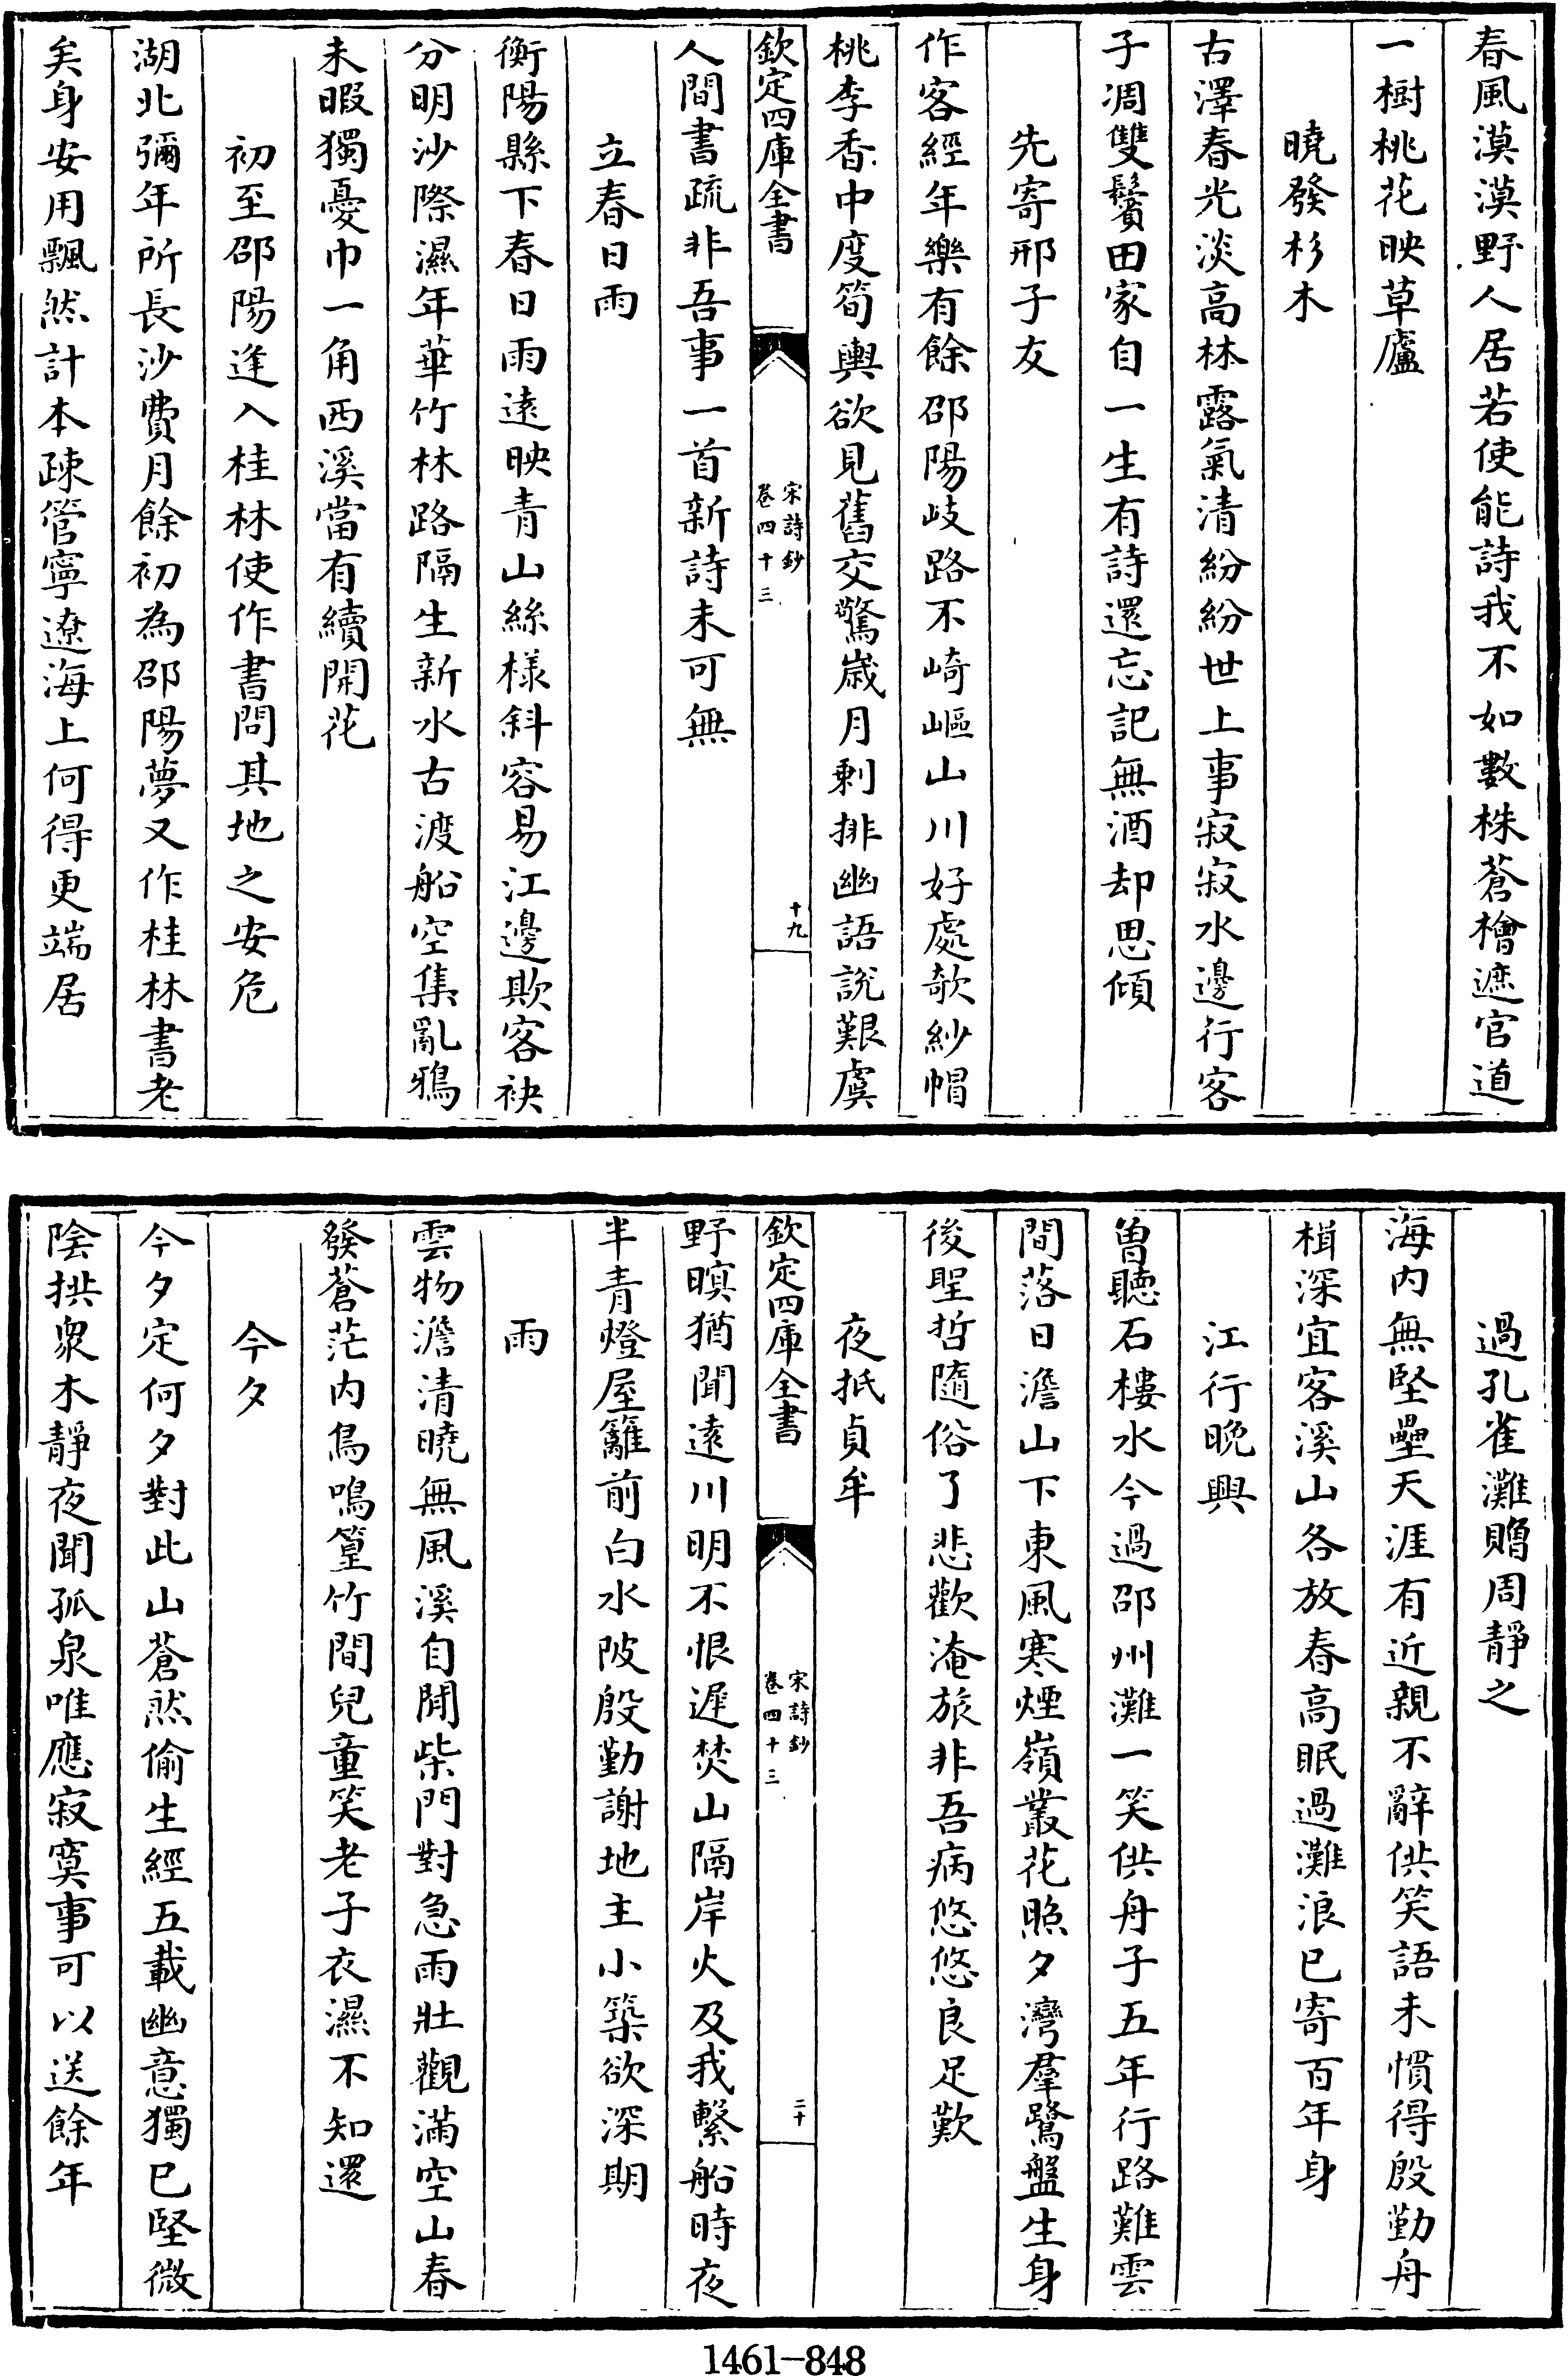 春風漠漠野人居若使能詩我不如數株蒼檜遮官道
一樹桃花映草廬
曉發杉木
古澤春光淡高林露氣清紛紛世上事寂寂水邊行客
子凋雙鬢田家自一生有詩還忘記無酒却思傾
先寄邢子友
作客經年樂有餘邵陽岐路不崎嶇山川好處欹紗帽
桃李香中度筍輿欲見舊交驚歲月剩排幽語說艱虞
欽定四庫全書
宋詩鈔
卷四十三
十九
人間書疏非吾事一首新詩未可無
立春日雨
衡陽縣下春日雨遠映青山絲樣斜容易江邊欺客袂
分明沙際濕年華竹林路隔生新水古渡船空集亂鴉
未暇獨憂巾一角西溪當有續開花
初至邵陽逢入桂林使作書問其地之安危
湖北彌年所長沙費月餘初為邵陽夢又作桂林書老
矣身安用飄然計本疎管寧遼海上何得更端居
過孔雀灘贈周靜之
海内無堅壘天涯有近親不辭供笑語未慣得殷勤舟
楫深宜客溪山各放春高眠過灘浪已寄百年身
江行晚興
曽聽石樓水今過邵州灘一笑供舟子五年行路難雲
間落日澹山下東風寒煙嶺叢花照夕灣羣鷺盤生身
後聖哲隨俗了悲歡淹旅非吾病悠悠良足歎
夜抵貞牟
欽定四庫全書
宋詩鈔
卷四十三
二十
野暝猶聞遠川明不恨遲焚山隔岸火及我繫船時夜
半青燈屋籬前白水陂殷勤謝地主小築欲深期
雨
雲物澹清曉無風溪自閒柴門對急雨壯觀滿空山春
發蒼茫内鳥鳴篁竹間兒童笑老子衣濕不知還
今夕
今夕定何夕對此山蒼然偷生經五載幽意獨已堅微
陰拱衆木靜夜聞孤泉唯應寂寞事可以送餘年
1461-848